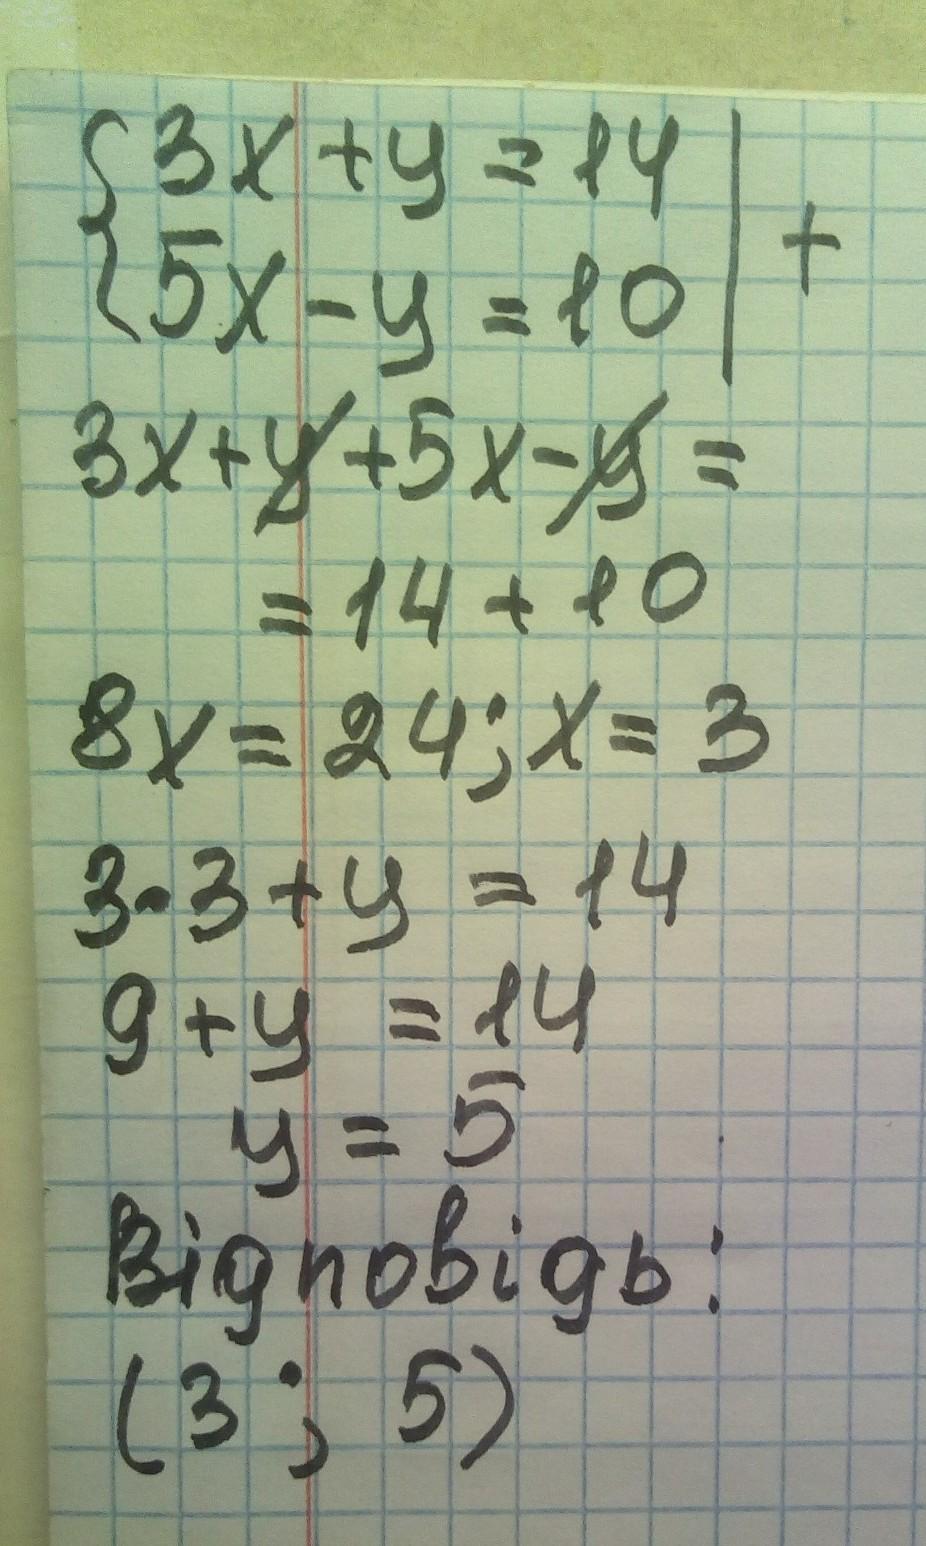 {3x + y = 14 | +
5x - y = 10
3x + y + 5x - y =
= 14 + 10
8x = 24; x = 3
3·3 + y = 14
9 + y = 14
y = 5
Відповідь:
(3; 5)